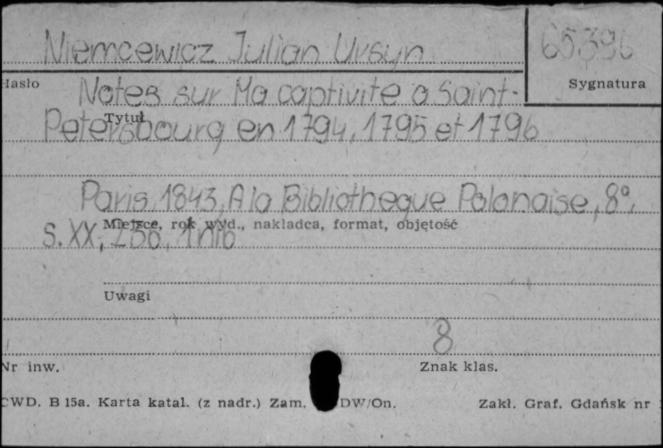 Niemcewicz Julian Ursyn
65396
Hasło
Sygnatura
Notes sur Ma captivite a Saint-
Tytuł
Petersbourg en 1794, 1795 et 1796
Paris 1843, A la Bibliotheque Polonaise, 8°,
Miejsce, rok wyd., nakładca, format, objętość
s. XX, 256, 1 nlb
Uwagi
8
Nr inw.
Znak klas.
CWD. B 15a. Karta katal. (z nadr.) Zam. DW/On.
Zakł. Graf. Gdańsk nr